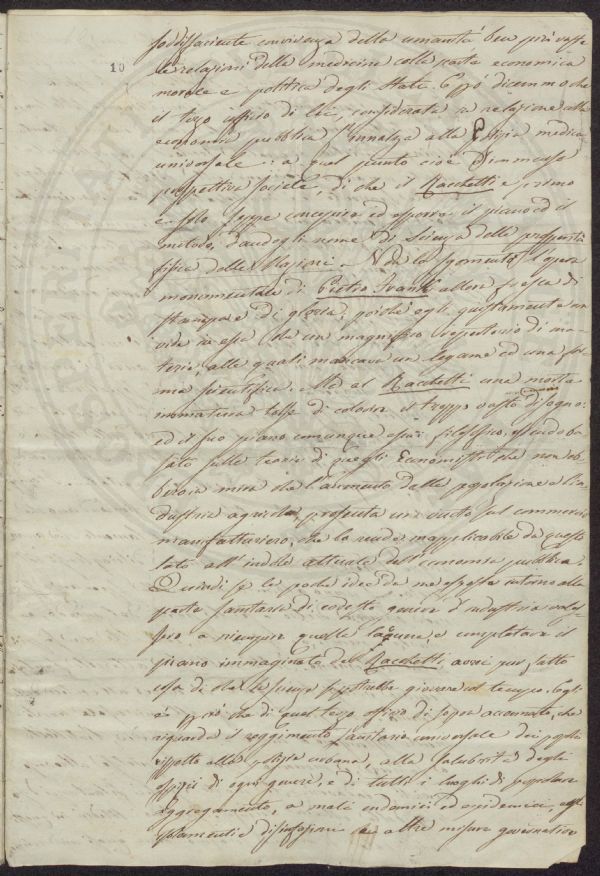 soddisfaciente convivenza della umanità ben più vaste
10
le relazioni della medicina colla parte economica
morale e politica degli Stati. E però dicemmo che
il terzo officio di lei, considerata in relazione alla
economia pubblica s'innalza alla Polizia medica
universale: a quel punto cioè d'immensa
prospettiva sociale, di che il Racchetti e primo
e solo seppe concepire ed esporre il piano ed il
metodo, dandogli nome di Scienza della prosperità
fisica delle Nazioni. Nè lo sgomentò l'opera
monumentale di Pietro Frank allora fresca di
stampa e di gloria, poichè egli giustamente non
vide in essa che un magnifico repertorio di ma-
terie alle quali mancava un legame ed una for-
ma scientifica. Ma al Racchetti una morte
immatura tolse di colorire il troppo vasto disegno:
ed il suo piano comunque assai filosofico, essendo ba-
sato sulle teorie di quegli Economisti che non eb-
bero in mira che l'aumento della popolazione e l'in-
dustria agricola, presenta un vuoto sul commercio
manufatturiero, che lo rende inapplicabile da questo
lato all'indole attuale dell'economia pubblica.
Quindi se le poche idee da me esposte intorno alla
parte sanitaria di codesto genere d'industria vales-
sero a riempire quelle lagune, e completare il
piano immaginato dal Racchetti, avrei pur fatto
cosa di che la scienza potrebbe giovarsi col tempo. Egli
è però che di quel terzo officio di sopra accennato, che
riguarda il reggimento sanitario universale dei popoli
rispetto alla polizia urbana, alla salubrità degli
ospizi di ogni genere, e di tutti i luoghi di popolare
aggregamento, a mali endemici ed epidemici,
isolamenti e disinfezioni ed altre misure governative